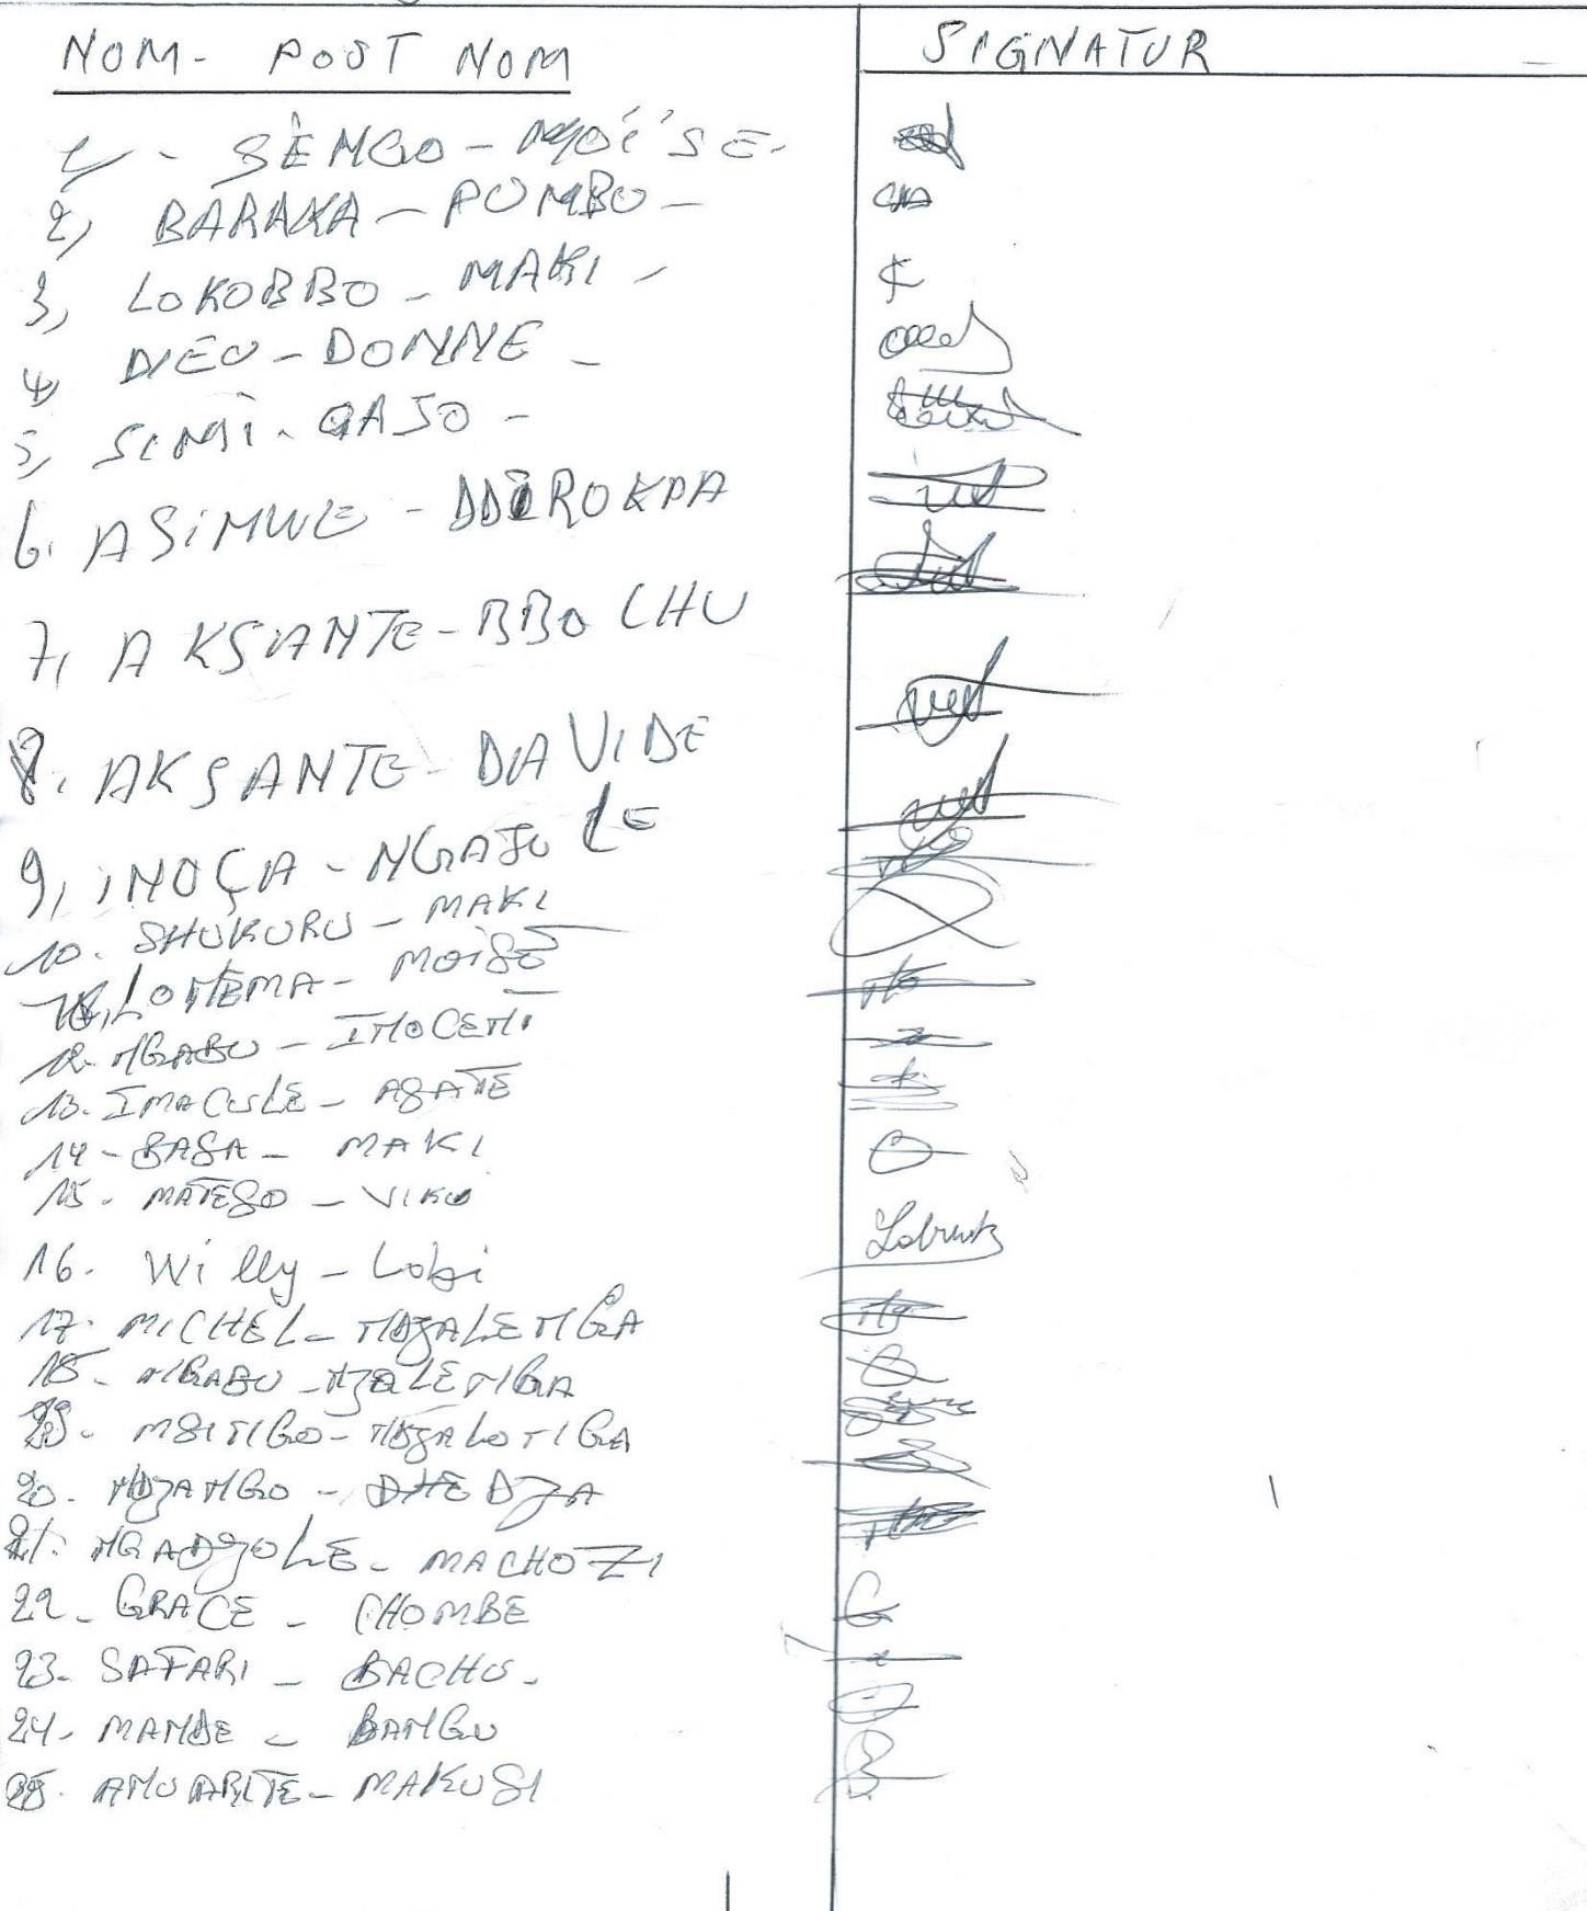 NOM - POST NOM SIGNATUR
1 - SENGO - MOÏSE -
2, BARAKA - POMBO -
3, LOKOBBO - MAKI -
4, DIEU - DONNE -
5, SIMI - GAJO -
6. ASIMWE - DDIROKPA
7, AKSANTE - BBO CHU
8. AKSANTE - DAVIDE
9, INOÇA - NGAJULE
10. SHUKURU - MAKI
LONEMA - MOÏSE
12. NGABU - INOCENI
13. IMACULE - AGATE
14 - BASA - MAKI
15 - MATESO - VIKU
16. Willy - Lobi
17. MICHEL - NDJALENGA
18 - NGABU - NJALENGA
19 - MSINGO - NDJALONGA
20. NDJANGO - DHEDJA
21. NGADJOLE - MACHOZI
22 - GRACE - CHOMBE
23 - SAFARI - BACHU -
24 - MANDE - BANGU
25. ANUARITE - MAKUSI